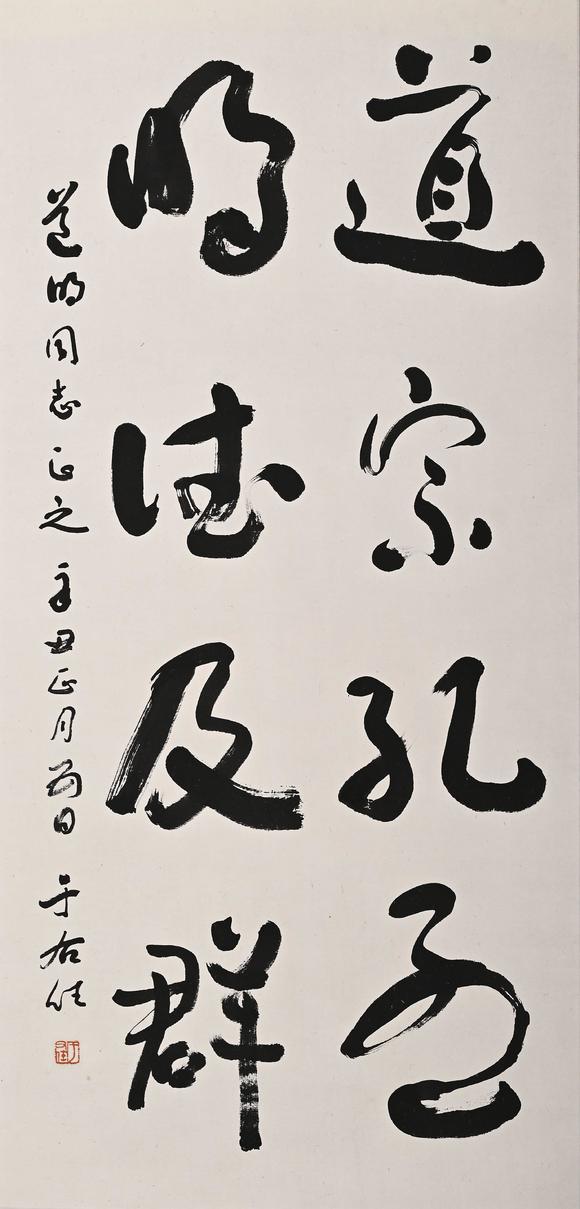 道宗孔孟
明德及群
道明同志正之 辛丑正月 日 于右任